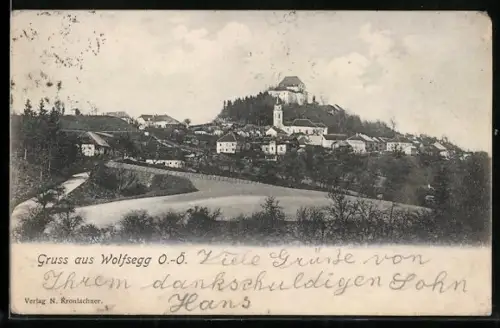 Gruss aus Wolfsegg O.-Ö. Viele Grüße von
Ihrem dankschuldigen Sohn
Hans
Verlag N. Kronlachner.